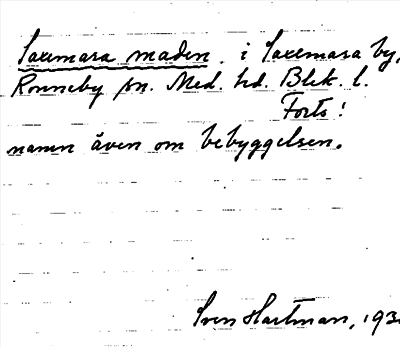 Saxemara maden. i Saxemara by,
Ronneby sn. Med. hd. Blek. l.
Forts!
namn även om bebyggelsen.
Sven Hartman, 193